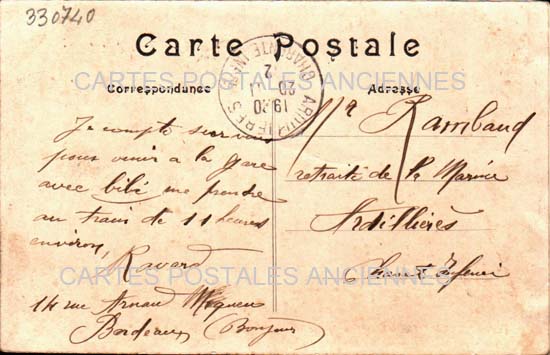 330740
Carte Postale
CARTES POSTALES ANCIENNES
Correspondance
Adresse
ARDILLIERES
CHARENTE INFRE
20
1920
Je compte sur vous
pour venir a la gare
avec bibé me prendre
au train de 11 heures
environ,
Ravard
14 rue Arnaud Miqueu
Bordeaux (Bonjour
Mr Rambaud
retraité de la Marine
Ardillières
Charente Inferieu
CARTES POSTALES ANCIENNES